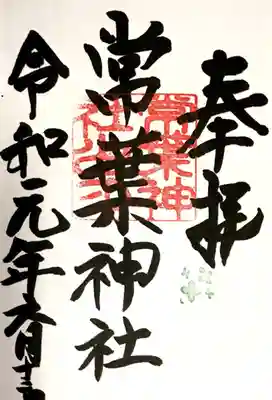 奉拝
常葉神社
令和元年六月十
常葉神